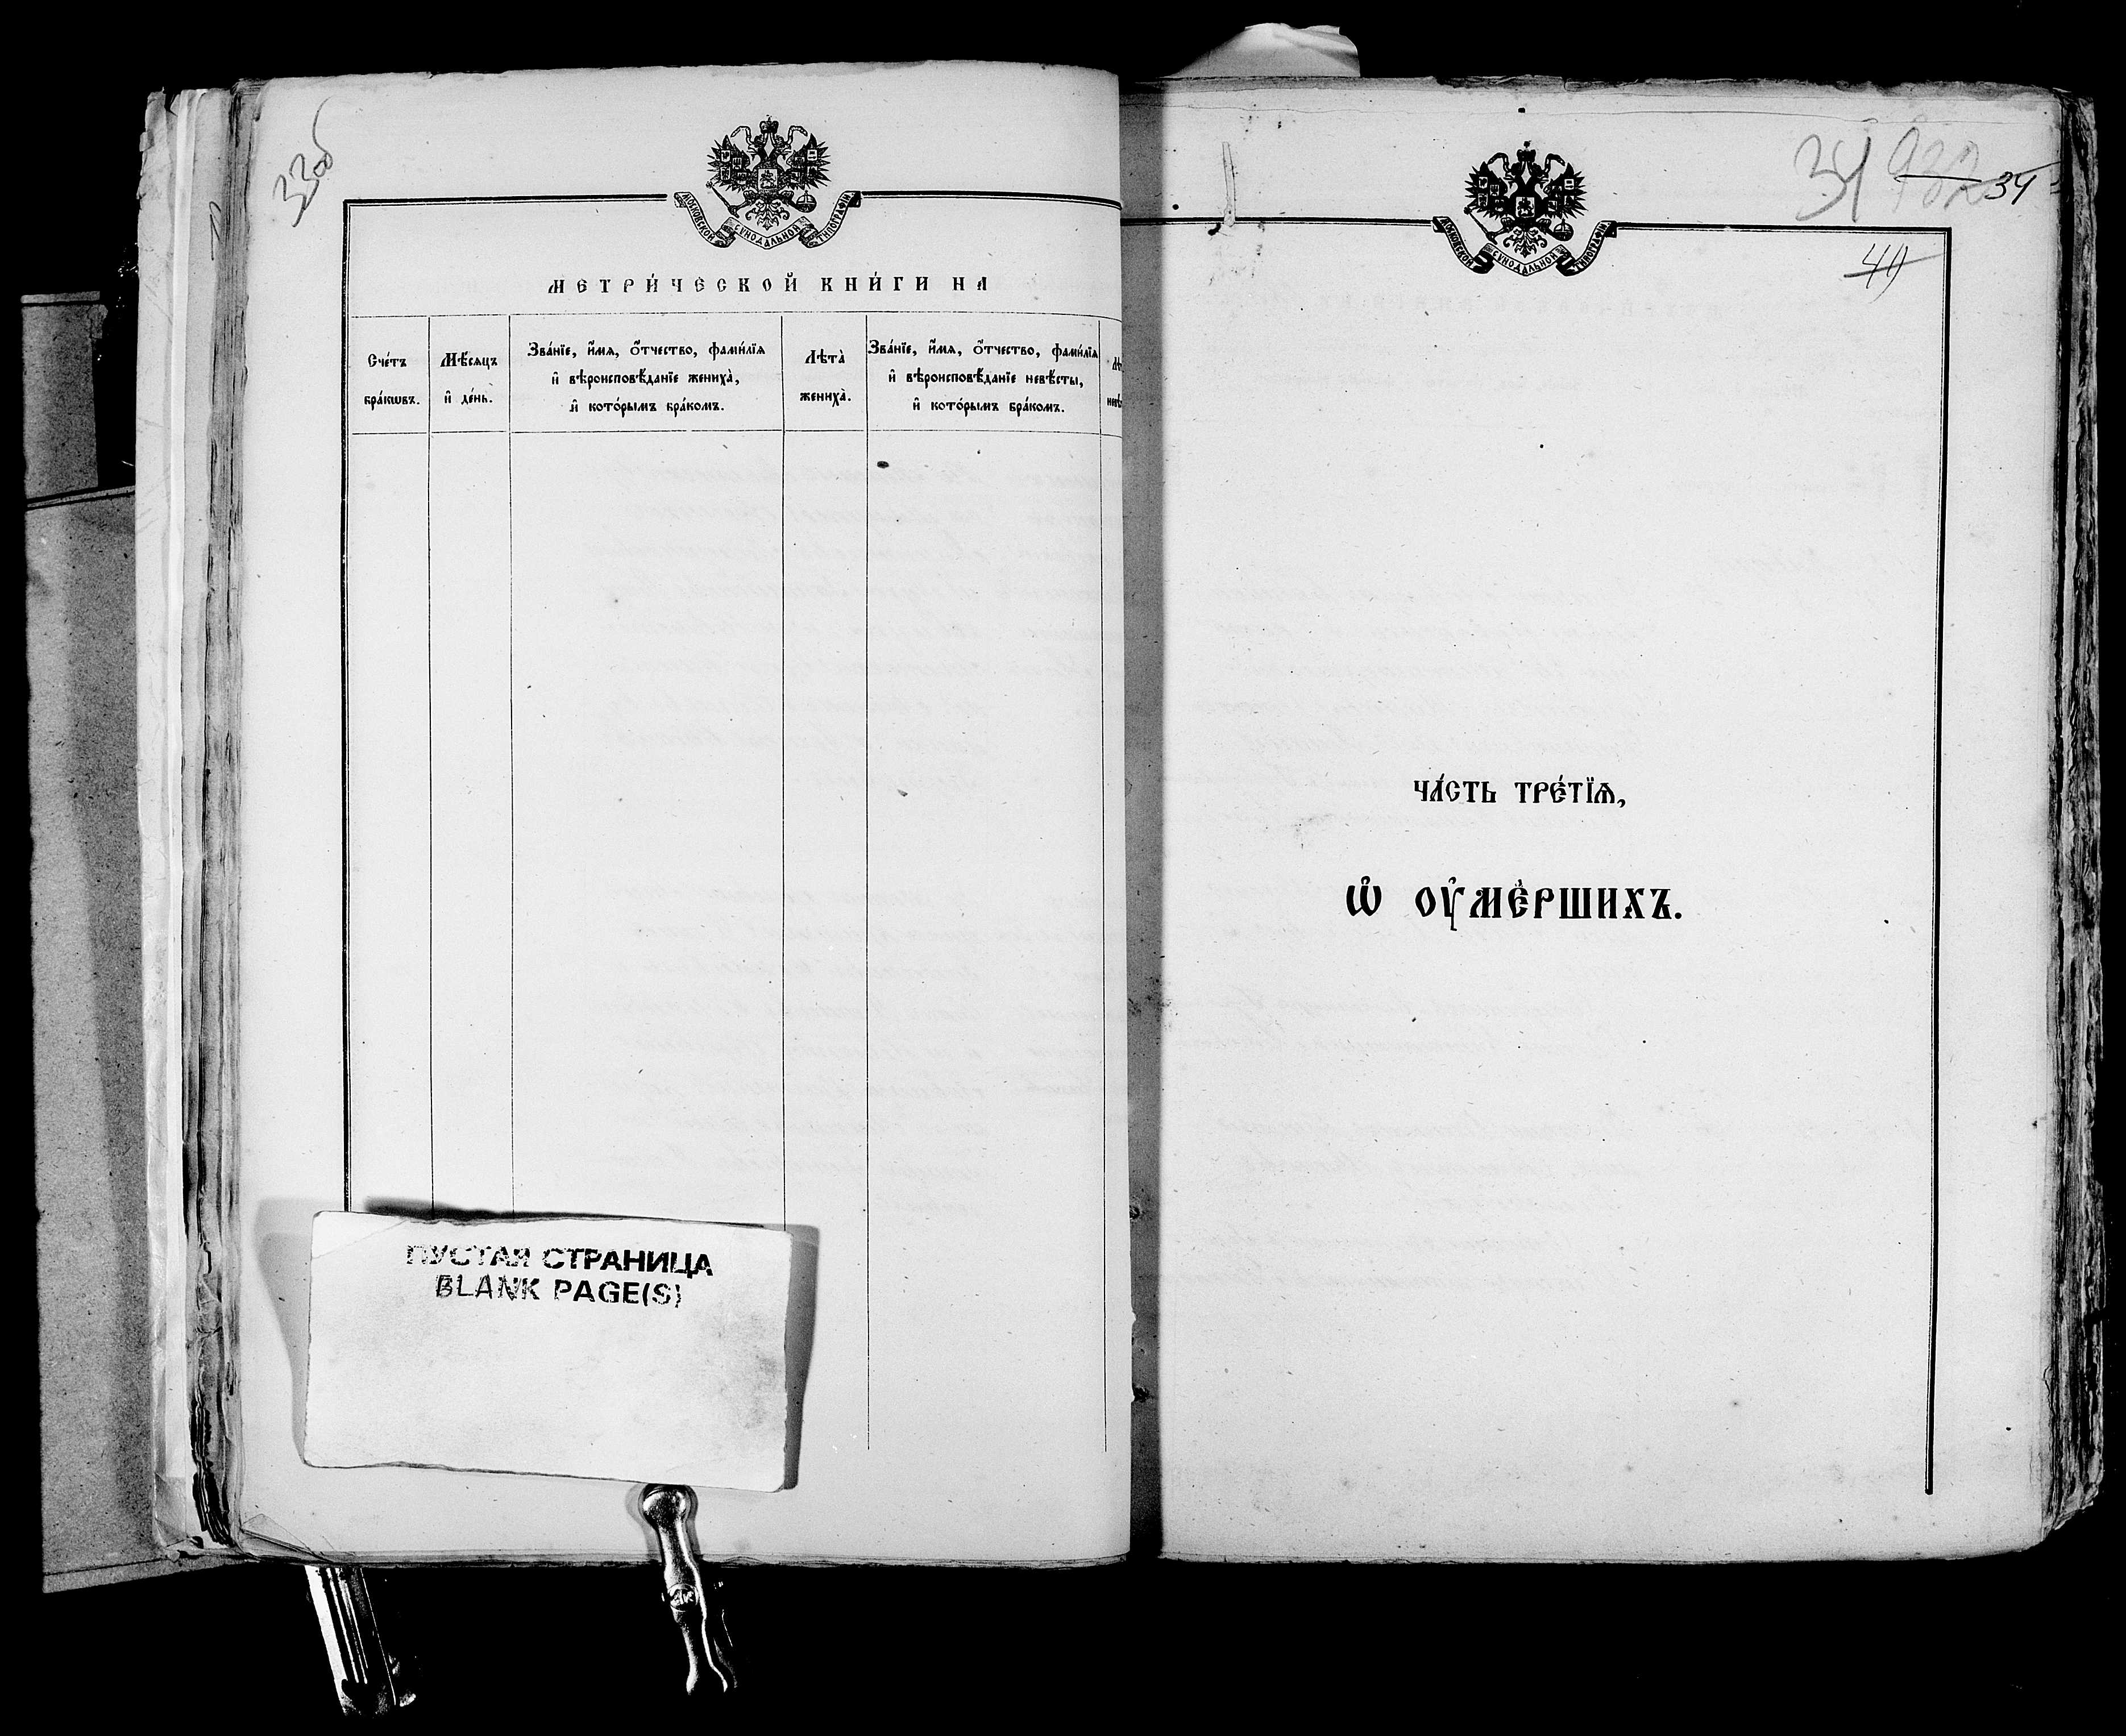 33об
МОСКОВСКОЙ СѴНОДАЛЬНОЙ ТИПОГРАФІИ
МЕТРИ́ЧЕСКОЙ КНИ́ГИ НА
Сче́тъ
бра́кѡвъ.
Мѣ́сѧцъ
и҆ де́нь.
Зва́нїе, и҆́мѧ, ѻ҆́тчество, фами́лїѧ
и҆ вѣроисповѣ́данїе жениха̀,
и҆ кото́рымъ бра́комъ.
Лѣта̀
жениха̀.
Зва́нїе, и҆́мѧ, ѻ҆́тчество, фами́лїѧ
и҆ вѣроисповѣ́данїе невѣ́сты,
и҆ кото́рымъ бра́комъ.
ПУСТАЯ СТРАНИЦА
BLANK PAGE(S)
34
34
40
МОСКОВСКОЙ СѴНОДАЛЬНОЙ ТИПОГРАФІИ
ЧА́СТЬ ТРЕ́ТЇѦ,
Ѡ҆ ОУ҆МЕ́РШИХЪ.